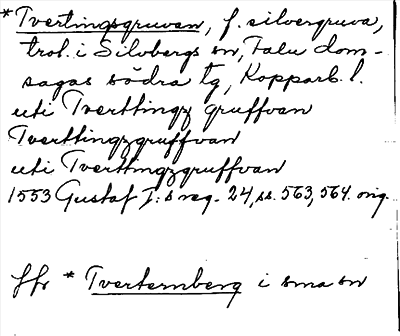 *Tvertingsgruvan, f. silvergruva,
trol. i Silvbergs sn, Falu dom-
sagas södra tg, Kopparb. l.
uti Tverttingz gruffvan
Tverttingzgruffvan
uti Tverttingzgruffvan
1553 Gustaf I:s reg. 24, ss. 563, 564. orig.
Jfr *Tverternberg i sma sn